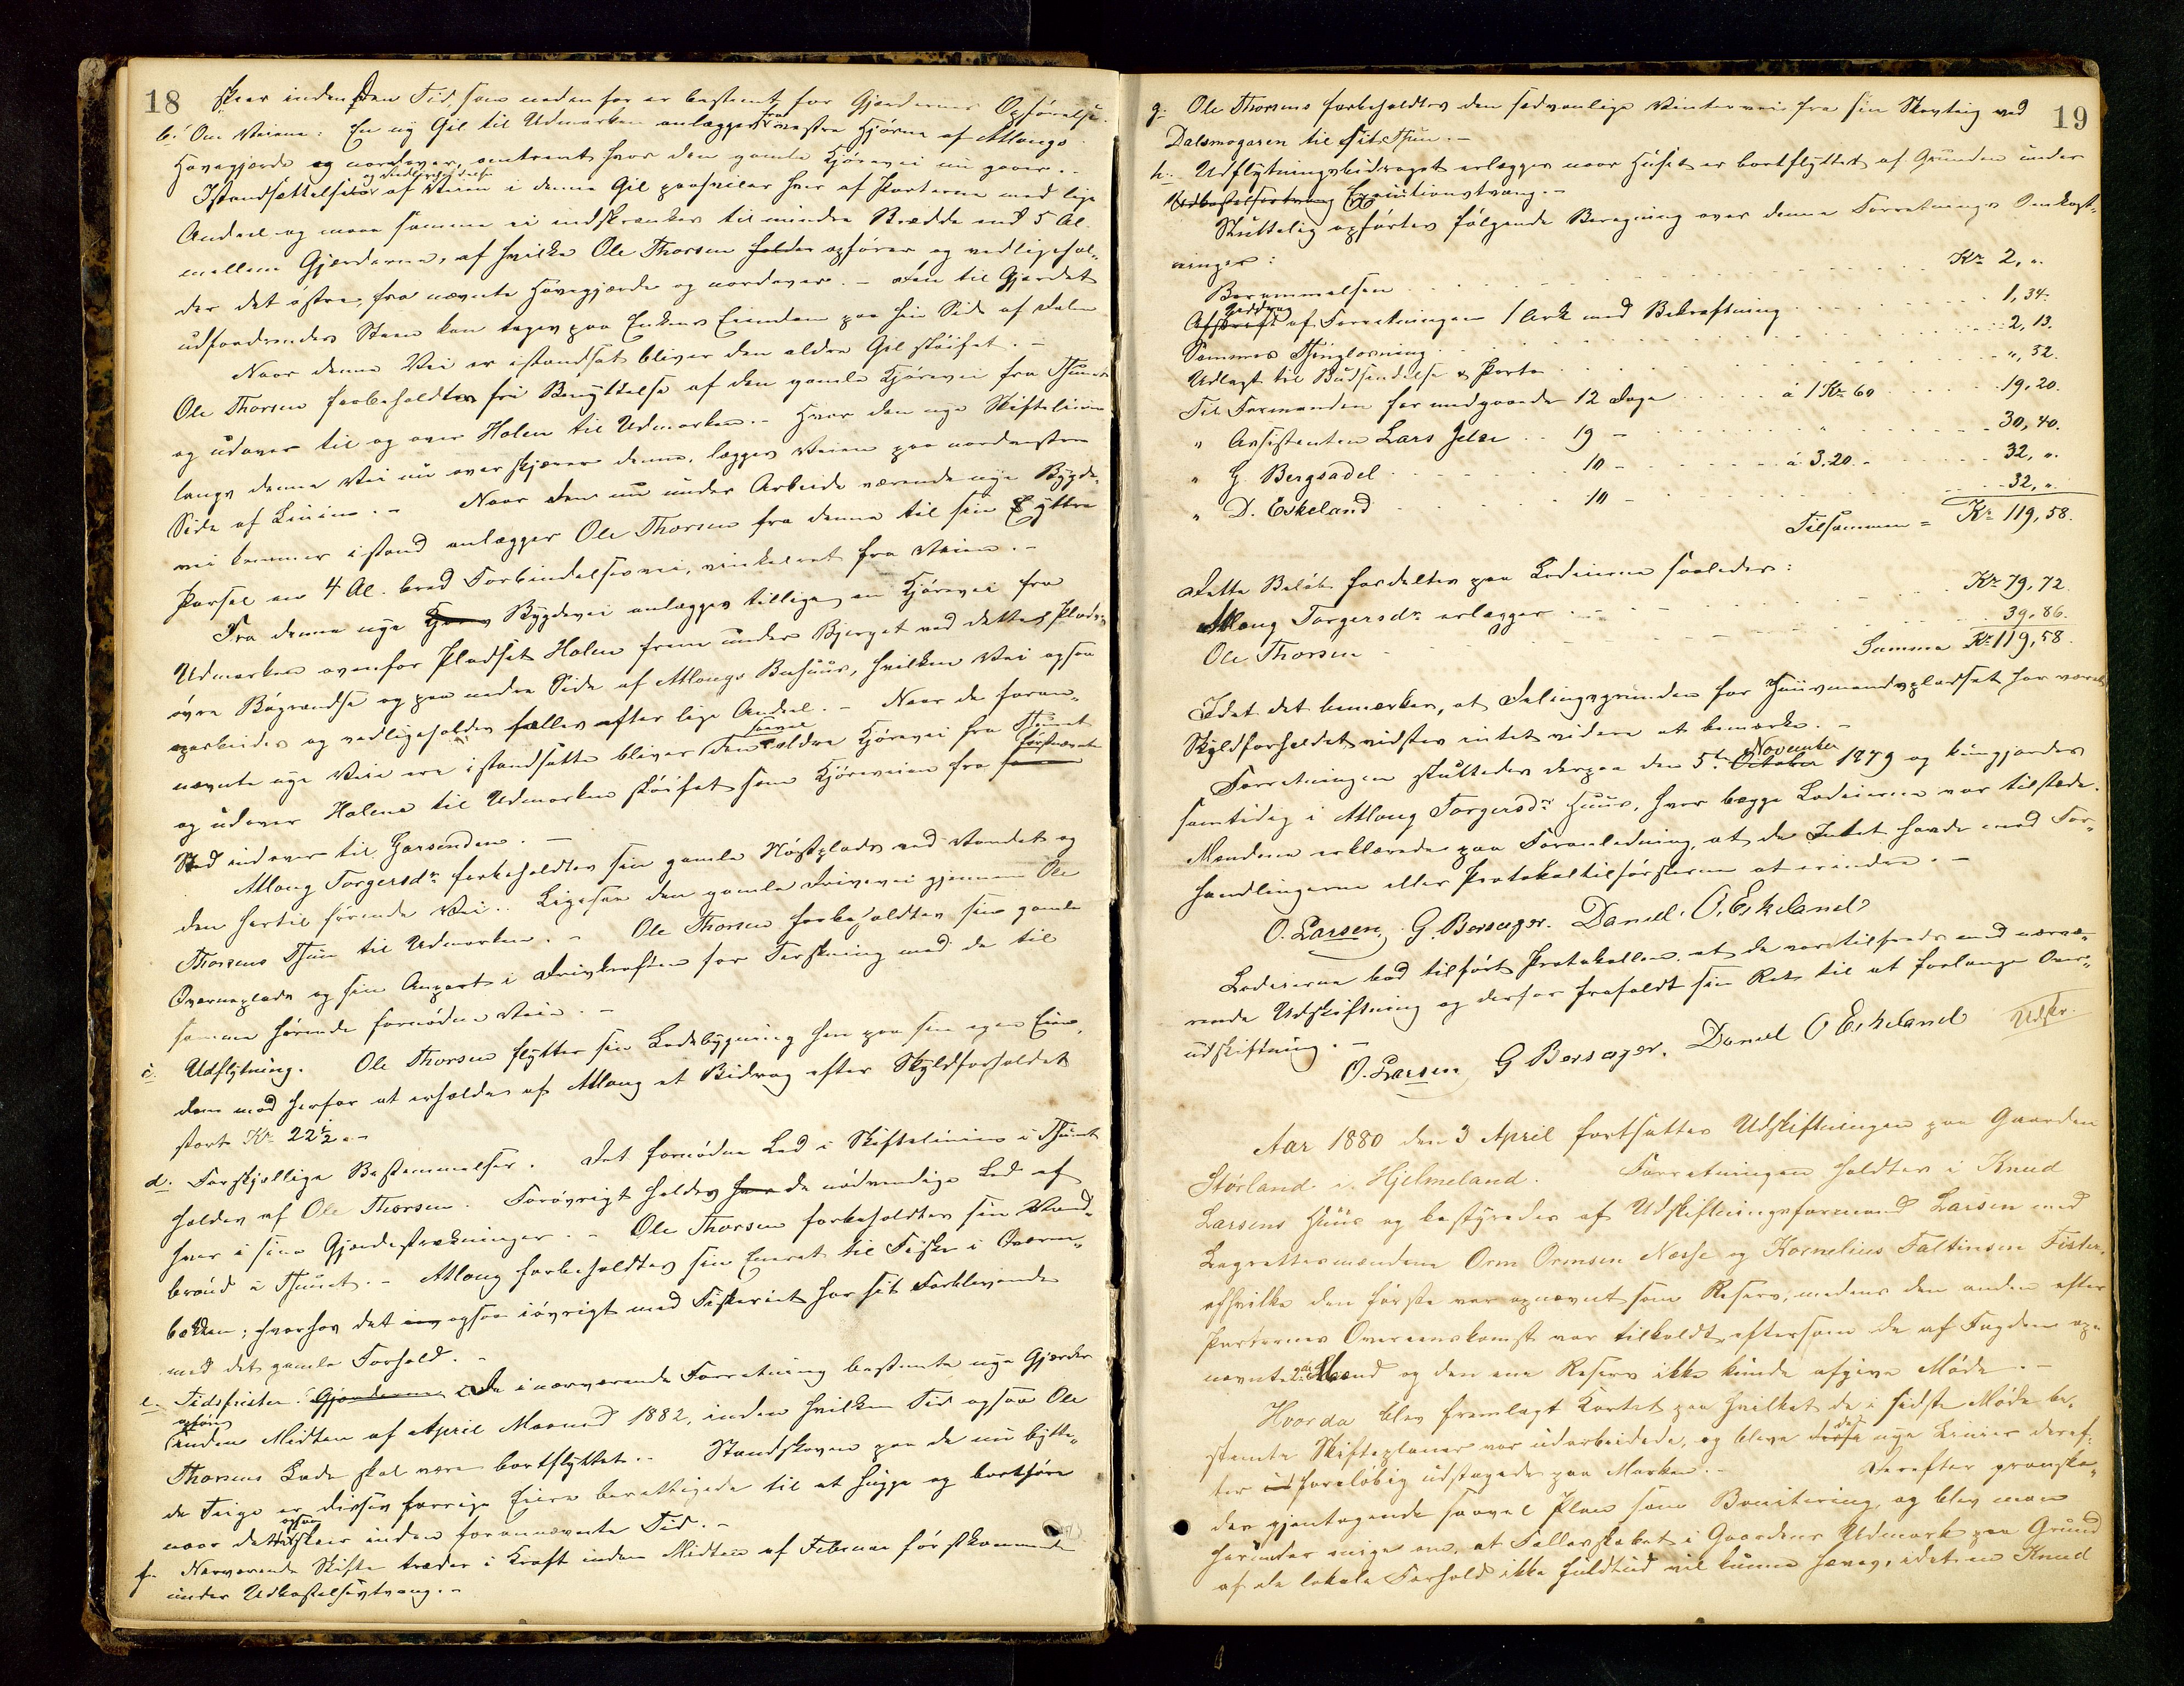 18
skeer inden den Tid, som nedenfor er bestemt for Gjerdernes Opførelse.
b. Om Veiene: En ny Geil til Udmarken anlægges fra vestre Hjørne af Mallaugs
Havegjærde og nordover, omtrent hvor den gamle Kjørevei nu gaar. -
og vedligeholdelse
Istandsættelsen af Veien i denne Geil paahviler hver af Parterne med lige
Andeel og maa samme ei indskrænkes til mindre Bredde end 5 Al.
mellem Gjærderne, af hvilke Ole Thorsen holder opfører og vedligehol-
der det østre, fra nævnte Havegjærde og nordover. - Den til Gjerdet
udfordrendes Steen kan tages paa Enkens Eiendom paa hin Side af Dalen
Naar denne Vei er istandsat bliver den ældre Geil sløifet. -
Ole Thorsen forbeholdtes fri Benyttelse af den gamle Kjørevei fra Thunet
og udover til og over Holen til Udmarken. - Hvor den nye Skiftelinie
langs denne Vei nu overskjærer denne, lægges Veien paa nordvestre
Side af Linien. - Naar den nu under Arbeide værende nye Bygde-
vei kommer istand anlægger Ole Thorsen fra denne til sin Yttre
Parsel en 4 Al. bred Forbindelsesvei, vinkelret fra Veien. -
Fra denne nye Bygdevei anlægges tillige en Kjørevei fra
Udmarken ovenfor Pladset Holen frem under Bjerget ved dettes Plads
øvre Bøgrændse og paa nedre Side af Mallaugs Buhuus, hvilken Vei ogsaa
oparbeides og vedligeholdes fælles efter lige Andeel. - Naar de foran-
nævnte nye Veie ere istandsatte bliver den ældre Kjørevei fra Thunet
og udover Holene til Udmarken sløifet som Kjøreveien fra førstnævnte
Sted indover til Garsenden. -
Mallaug Torgersdr forbeholdtes sin gamle Nøstplads ved Vandet og
den hertil førende Vei. - Ligesaa den gamle Drivevei gjennem Ole
Thorsens Thun til Udmarken. - Ole Thorsen forbeholdtes sin gamle
Qværneplads og sin Anpart i Drivkraften for Terskning med de til
samme hørende fornødne Veie. -
c. Udflytning. Ole Thorsen flytter sin Ladebygning hen paa sin egen Eien-
dom mod herfor at erholde af Mallaug et Bidrag efter Skyldforholdet
stort Kr 22½. -
d. Forskjellige Bestemmelser. Det fornødne Led i Skiftelinien i Thunet
holdes af Ole Thorsen. Forøvrigt holdes de nødvendige Led af
hver i sine Gjerdestrækninger. - Ole Thorsen forbeholdtes sin Vand-
brønd i Thunet. - Mallaug forbeholdtes sin Eneret til Fiske i Qværn-
bækken; hvorhos det ogsaa iøvrigt med Fiskeriet har sit Forblivende
med det gamle Forhold. -
e. Tidsfrister. Gjerderne De i nærværende Forretning bestemte nye Gjerder
opføres
inden Midten af April Maaned 1882, inden hvilken Tid ogsaa Ole
Thorsens Lade skal være bortflyttet. - Standskoven paa de nu bytte-
de Teige er disses forrige Eiere berettigede til at hugge og bortføre
naar dette ogsaa skeer inden forannævnte Tid. -
f. Nærværende Skifte træder i Kraft inden Midten af Februar førstkommende
under Udkastelsestvang. -
19
g. Ole Thorsens forbeholdtes den sædvanlige Vintervei fra sin Skovteig ved
Dalsmogaren til sit Thun. -
h. Udflytningsbidraget erlægges naar Huset er bortflyttet af Grunden under
Udkastelsestvang Executionstvang. -
Sluttelig opførtes følgende Beregning over denne Forretnings Omkost-
ninger:
Berammelsen Kr 2, „
Afskrift af Forretningen 1 Ark med Bekræftning 1,34.
Sammes Thinglæsning 2,13.
Udlagt til Budsendelse & Porto „, 52.
Til Formanden for medgaaede 12 Dage á 1 Kr 60 19.20.
„ Assistenten Lars 19 - „ 30,40.
„ G. Bergsadel 10 - á 3.20. - 32, „
„ D. Eskeland 10 - 32, „
Tilsammen = Kr 119,58.
Dette Beløb fordeltes paa Lodeierne saaledes:
Mallaug Torgersdr erlægger Kr 79,72
Ole Thorsen 39.86.
Summa Kr 119,58.
Idet det bemærkes, at Delingsgrunden for Huusmandspladset har været
Skyldforholdet vidstes intet videre at bemærke. -
November
Forretningen sluttedes derpaa den 5te October 1879 og kundgjordes
samtidig i Mallaug Torgersdr Huus, hvor begge Lodeierne var tilstede.
Mændene erklærede paa Foranledning, at de Intet havde mod For-
handlingerne eller Protokoltilførslerne at erindre. -
O. Larsen, G. Bersager. Daniel. O. Eskeland
Lodeierne bad tilført Protokollen at de vare tilfreds med nærvæ-
rende Udskiftning og derfor frafaldt sin Ret til at forlange Over-
udskiftning. -
O. Larsen G Bersager. Daniel O Eskeland Udskr.
Aar 1880 den 3 April fortsattes Udskiftningen paa Gaarden
Størland i Hjelmeland. Forretningen holdtes i Knud
Larsens Huus og bestyredes af Udskiftningsformand Larsen med
Lagrettesmændene Orm Ormsen Næsse og Kornelius Faltinsen Fister,
af hvilke den første var opnævnt som Reserv, medens den anden efter
Parternes Overeenskomst var tilkaldt eftersom de af Fogden op-
nævnte 2de Mænd og den ene Reserv ikke kunde afgive Møde. -
Hvorda blev fremlagt Kartet paa hvilket de i sidste Møde be-
stemte Skifteplaner var udarbeidede, og bleve de nye Linier deref-
ter foreløbig udstagede paa Marken. - Derefter granske-
des gjentagende saavel Plan som Bonitering, og blev man
herunder enige om, at Fællesskabet i Gaardens Udmark paa Grund
af de lokale Forhold ikke fuldtud vil kunne hæves, idet en Knud